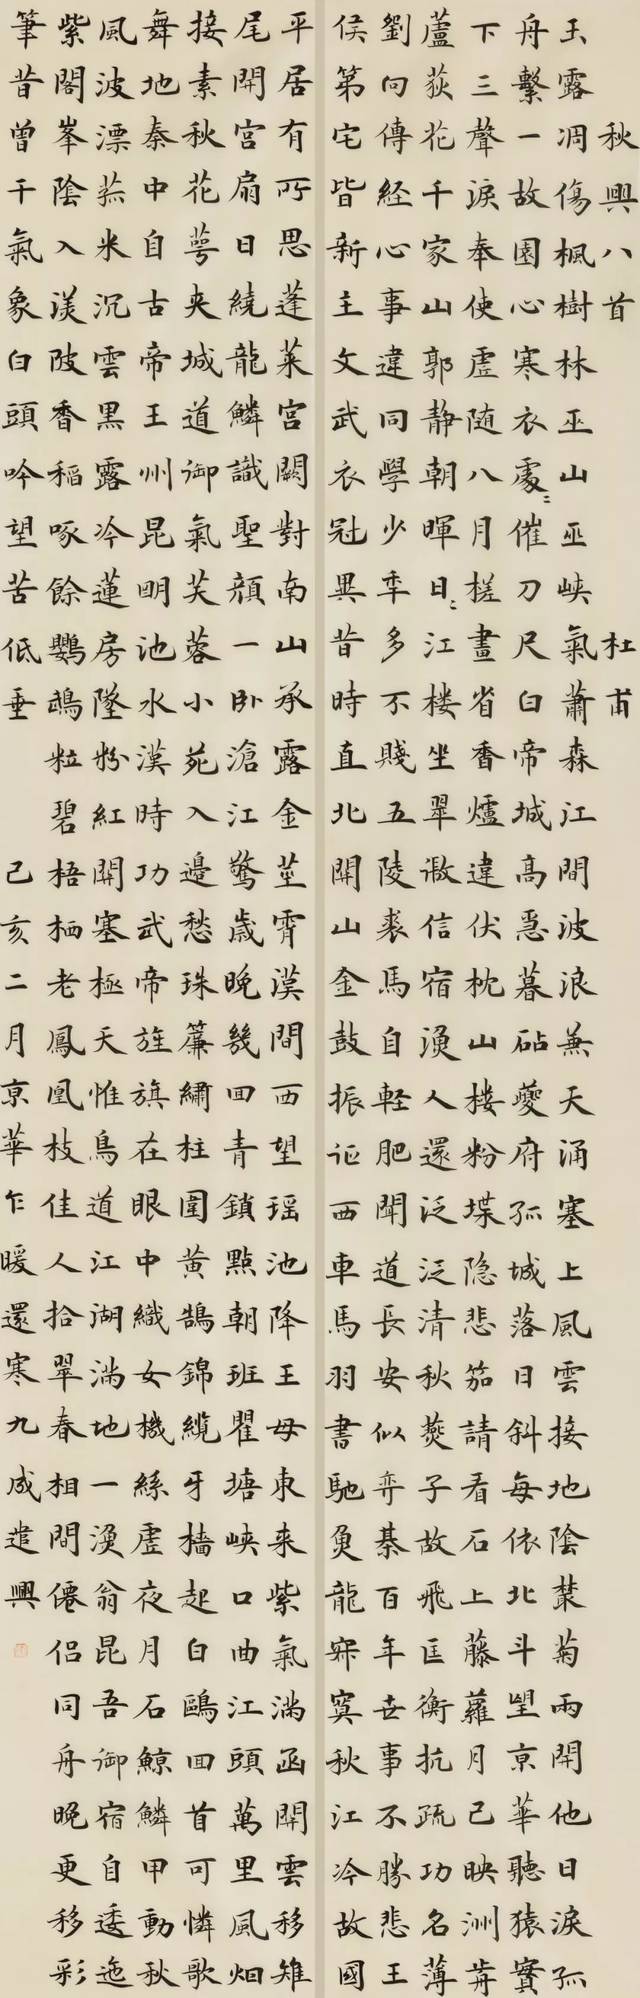 秋興八首 杜甫
玉露凋傷楓樹林巫山巫峽氣蕭森江間波浪兼天涌塞上風雲接地陰叢菊兩開他日淚孤
舟繫一故園心寒衣處〻催刀尺白帝城高急暮砧夔府孤城落日斜每依北斗望京華聽猿實
下三聲淚奉使虛随八月槎畫省香爐違伏枕山楼粉堞隐悲笳請看石上藤蘿月已映洲前
蘆荻花千家山郭静朝暉日〻江楼坐翠微信宿漁人還泛泛清秋燕子故飛匡衡抗疏功名薄
劉向傳經心事違同學少年多不賤五陵裘馬自軽肥聞道長安似弈棊百年世事不勝悲王
侯第宅皆新主文武衣冠異昔時直北関山金鼓振征西車馬羽書馳魚龍寂寞秋江冷故國
平居有所思蓬萊宮闕對南山承露金莖霄漢間西望瑶池降王母東来紫氣滿函關雲移雉
尾開宮扇日繞龍鱗識聖顔一卧滄江驚歲晚幾回青鎖點朝班瞿塘峽口曲江頭萬里風烟
接素秋花萼夹城道御氣芙蓉小苑入邉愁珠簾繡柱圍黄鵠錦纜牙檣起白鷗回首可憐歌
舞地秦中自古帝王州昆明池水漢時功武帝旌旗在眼中織女機絲虛夜月石鯨鱗甲動秋
風波漂菰米沉雲黑露冷蓮房墜粉紅關塞極天惟鳥道江湖滿地一漁翁昆吾御宿自逶迤
紫閣峯陰入渼陂香稲啄餘鸚鵡粒碧梧栖老鳳凰枝佳人拾翠春相問僊侣同舟晚更移彩
筆昔曾干氣象白頭吟望苦低垂 己亥二月京華乍暖還寒九成遣興